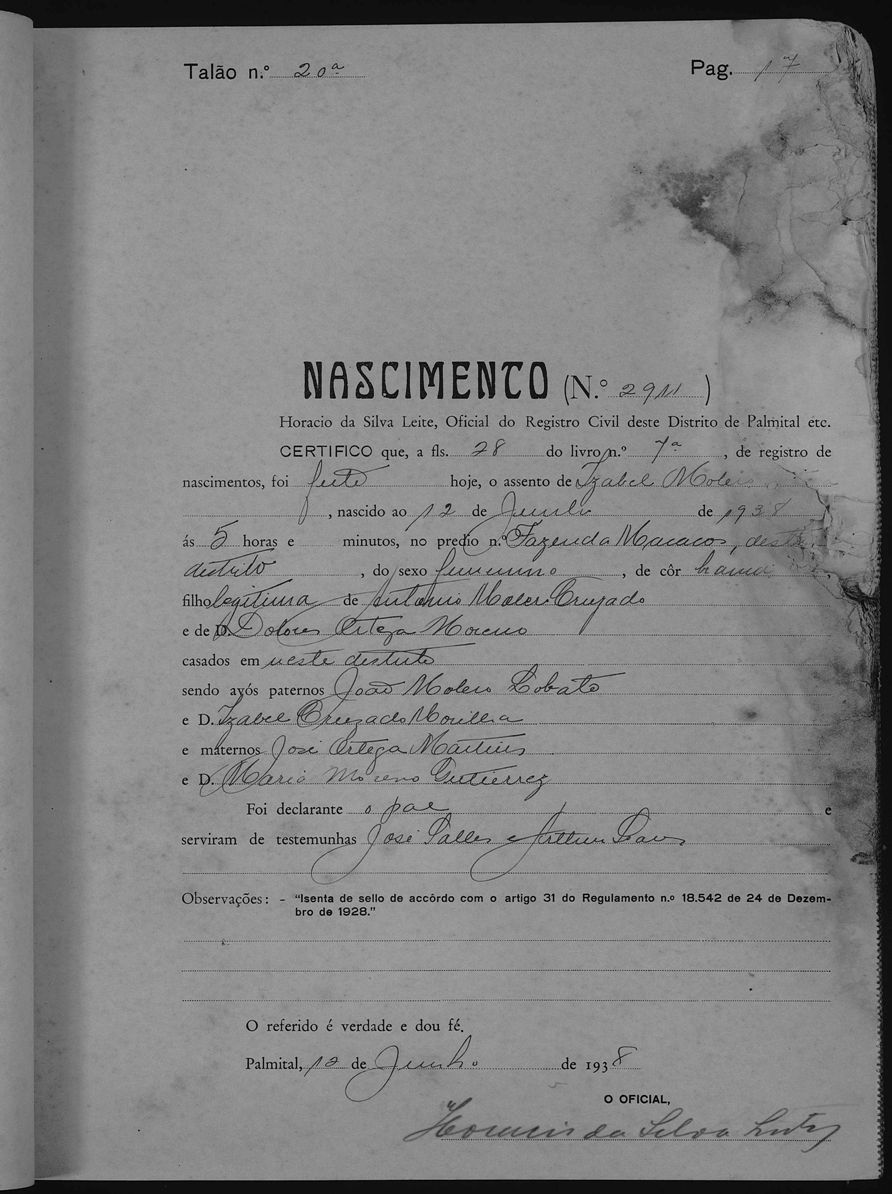 Talão n.º 20ª Pag. 17
NASCIMENTO (N.º 2911)
Horacio da Silva Leite, Oficial do Registro Civil deste Distrito de Palmital etc.
CERTIFICO que, a fls. 28 do livro n.º 7ª, de registro de
nascimentos, foi feito hoje, o assento de Izabel Molero
, nascido ao 12 de Junho de 1938
ás 5 horas e minutos, no predio n.º Fazenda Macacos, deste
districto, do sexo femenino, de côr branca,
filho legitima de Antonio Molero Cruzado
e de D. Dolores Ortega Moreno
casados em neste districto
sendo avós paternos João Molero Lobato
e D. Izabel Cruzado
e maternos José Ortega Martins
e D. Maria Moreno Gutierrez
Foi declarante o pae e
serviram de testemunhas José Salles e Arthur
Observações: - "Isenta de sello de accôrdo com o artigo 31 do Regulamento n.º 18.542 de 24 de Dezem-
bro de 1928."
O referido é verdade e dou fé.
Palmital, 12 de Junho de 1938
O OFICIAL,
Horacio da Silva Leite